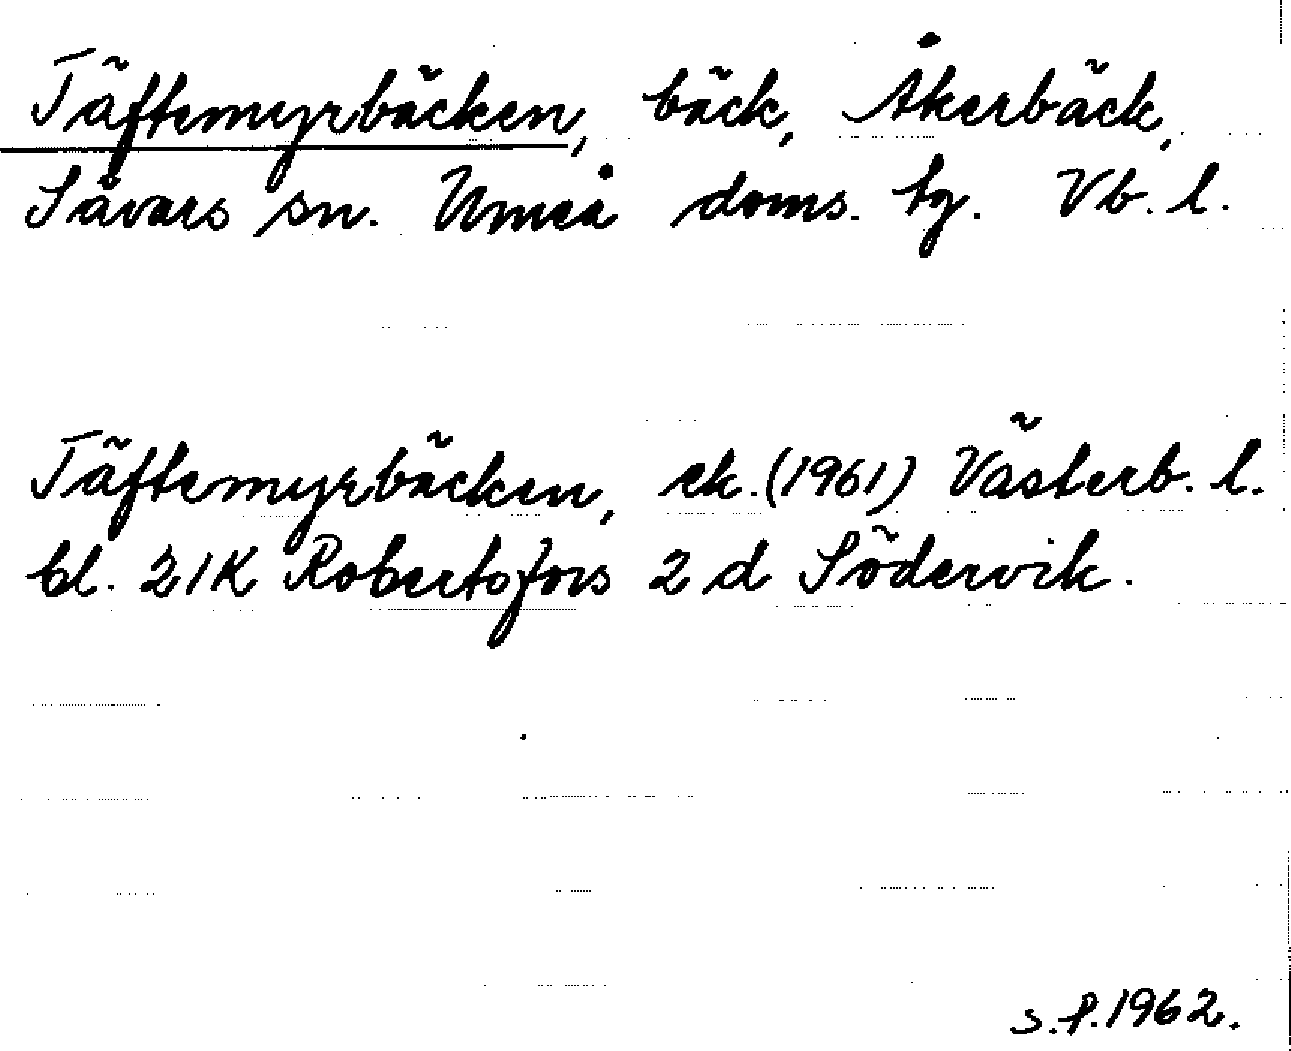 Täftemyrbäcken, bäck, Åkerbäck,
Sävars sn. Umeå doms. tg. Vb. l.
Täftemyrbäcken, ek. (1961) Västerb. l.
bl. 21K Robertsfors 2 d Södervik.
S.P. 1962.